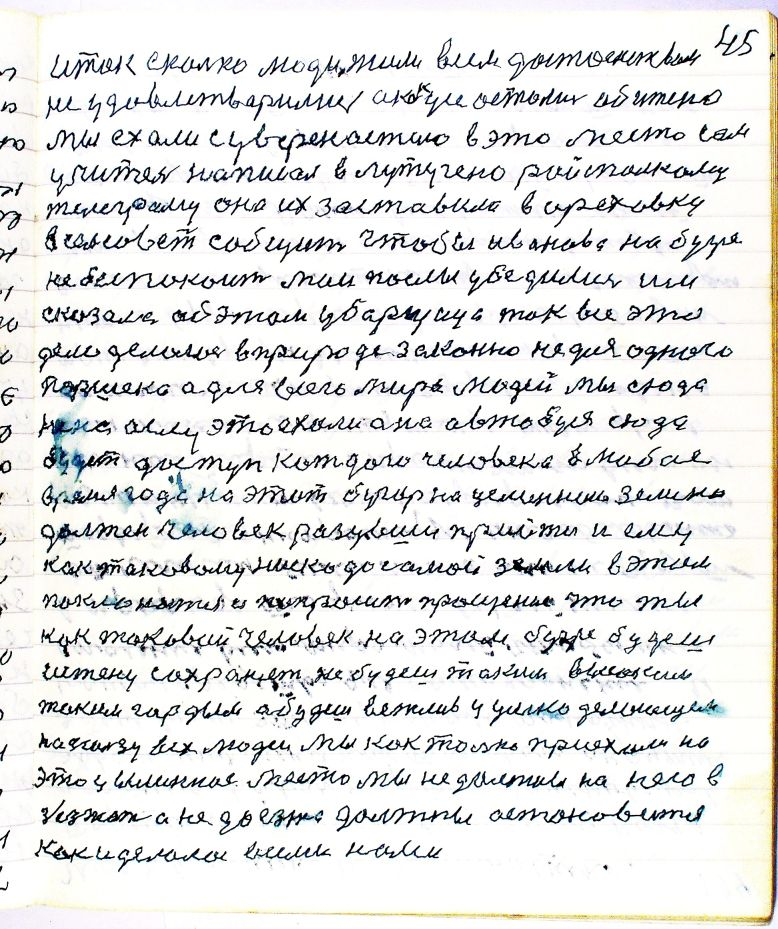 45
и так сколко люди жили всем достоенством
не удовлетварилис а на бугре остолис обижено
мы ехали с увереностию в это место сам
учител написал в лутугено райисполкому
телеграму она их заставила в ореховку
в салсовет собщит чтобы иванова на бугре
не беспокоит мои послы убедилис им
сказала об этом у баршуца так все это
дело делолос в природе законно не для одного
паршека а для всего мира людей мы сюда
на селу этоехали а на автобусе сюда
будет доступ каждого человека в любое
время года на этот бугор на целинною землю
должен человек разувши прийты и ему
как таковому ниско до самой земли в этом
поклонится и попросит прощение что ты
как таковой человек на этом бугре будеш
чи тену сохранят не будеш таким високим
таким гордым а будеш вежлив и умно делающем
на ползу всх людей мы как толко приехали на
это целинное место мы не должни на него в
зезжат а не доезжа должны астоновится
как и делолос всеми нами